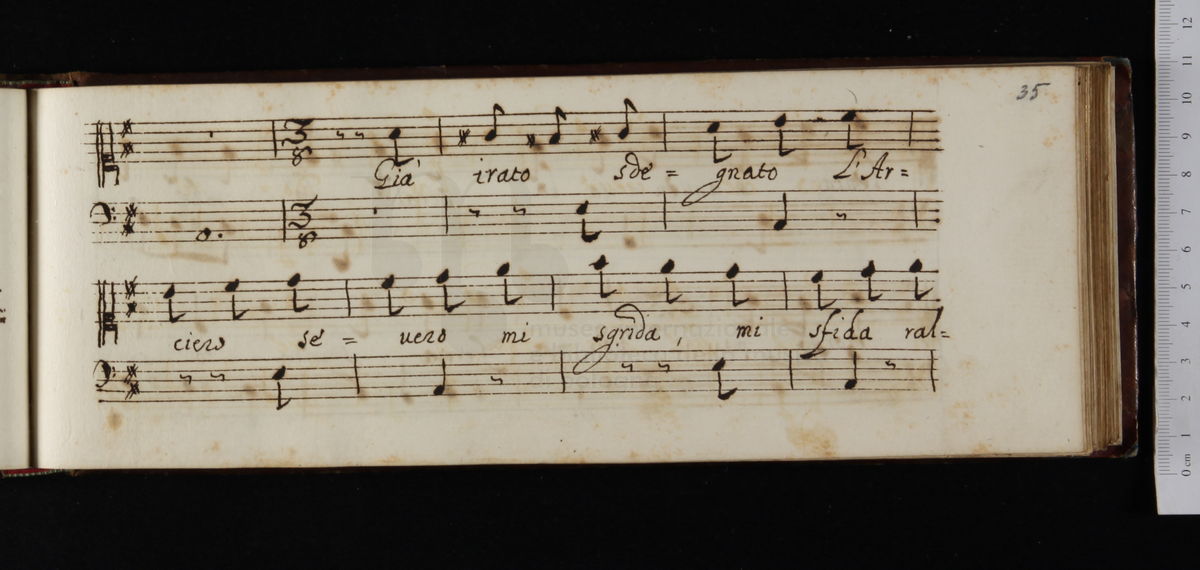 35
3/8
Già irato sde = gnato L'Ar=
3/8
ciero se = uero mi sgrida, mi sfida ral=
museo internazionale
0 cm 1 2 3 4 5 6 7 8 9 10 11 12